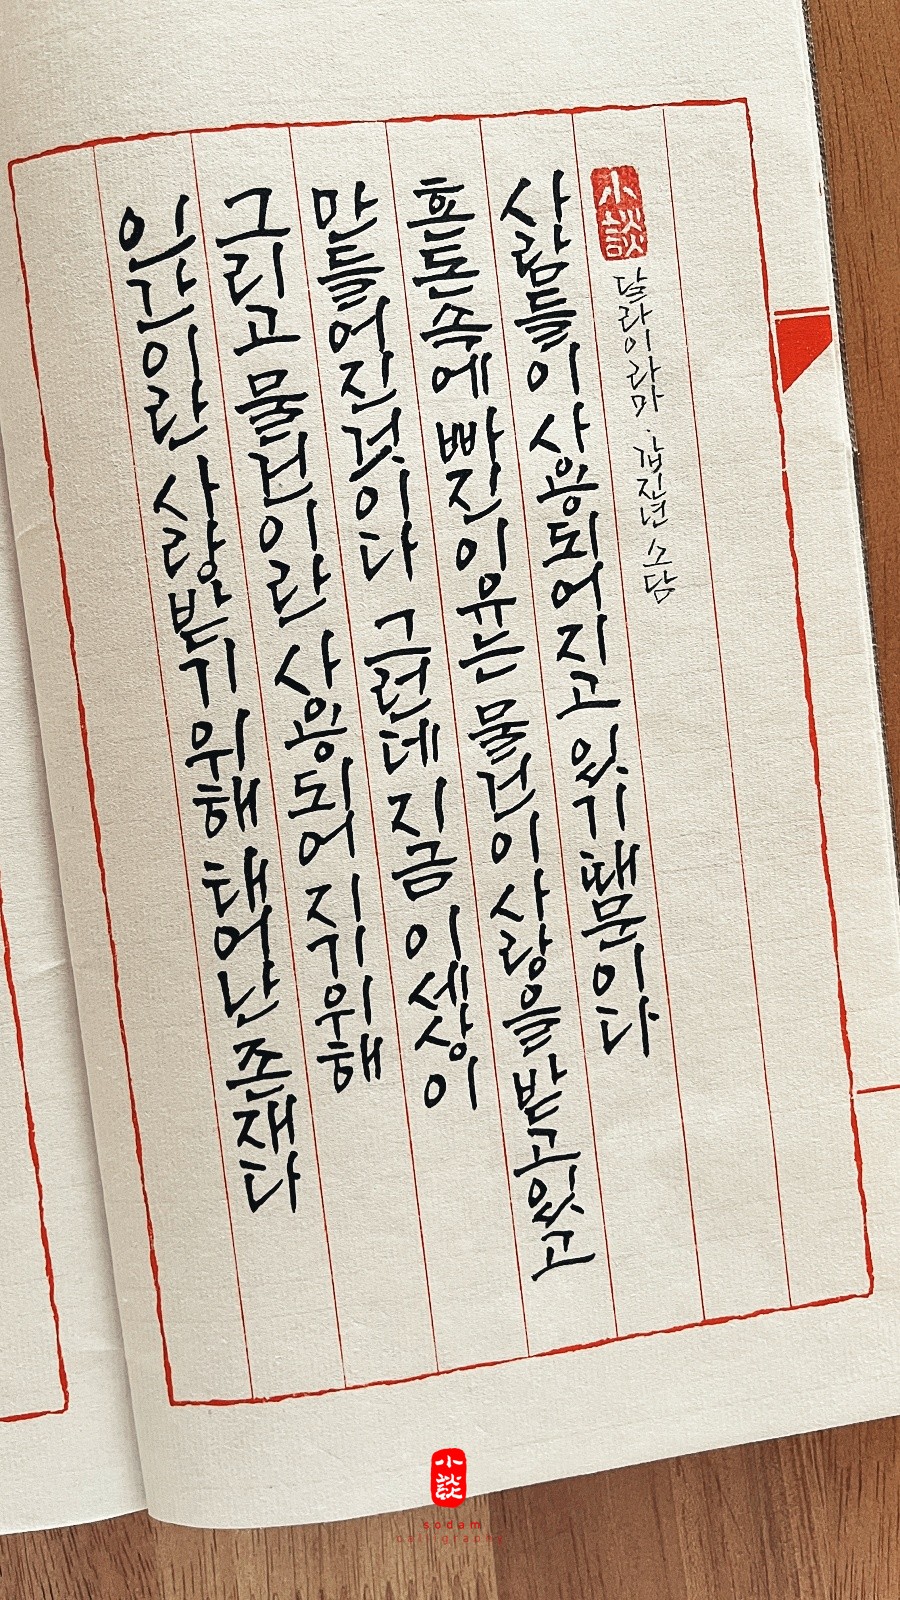 인간이란 사랑받기 위해 태어난 존재다
그리고 물건이란 사용되어 지기 위해
만들어진 것이다 그런데 지금 이 세상이
혼돈속에 빠진 이유는 물건이 사랑을 받고 있고
사람들이 사용되어지고 있기 때문이다
小談
달라이라마 · 갑진년 소담
小談
sodam
calligraphy